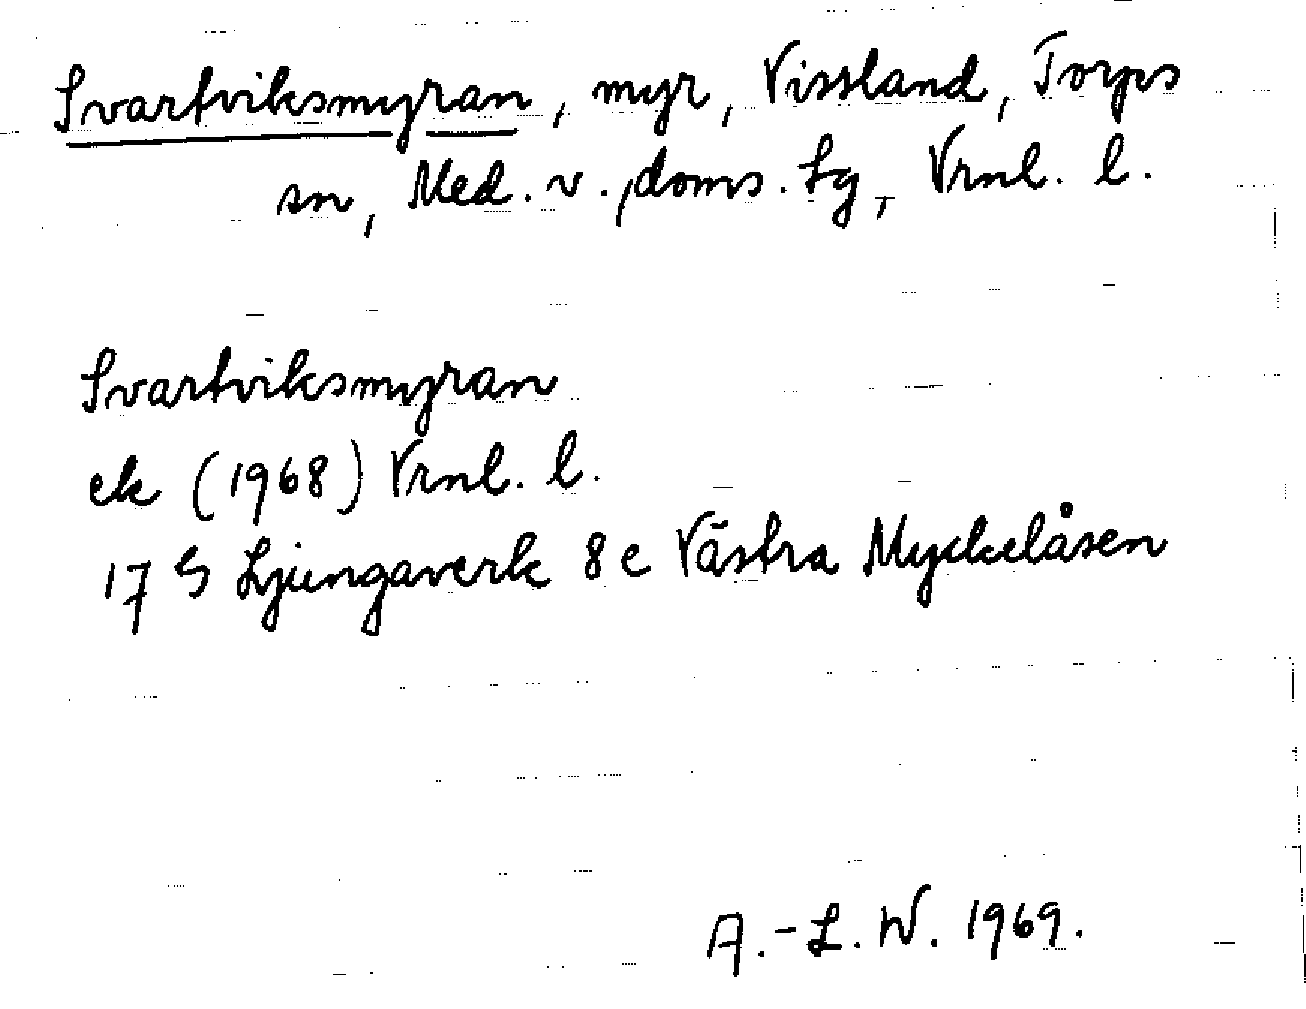 Svartviksmyran, myr, Vissland, Torps
sn, Med. v., doms. tg, Vrnl. l.
Svartviksmyran
ek (1968) Vrnl. l.
17 G Ljungaverk 8 e Västra Myckelåsen
A.-L. W. 1969.